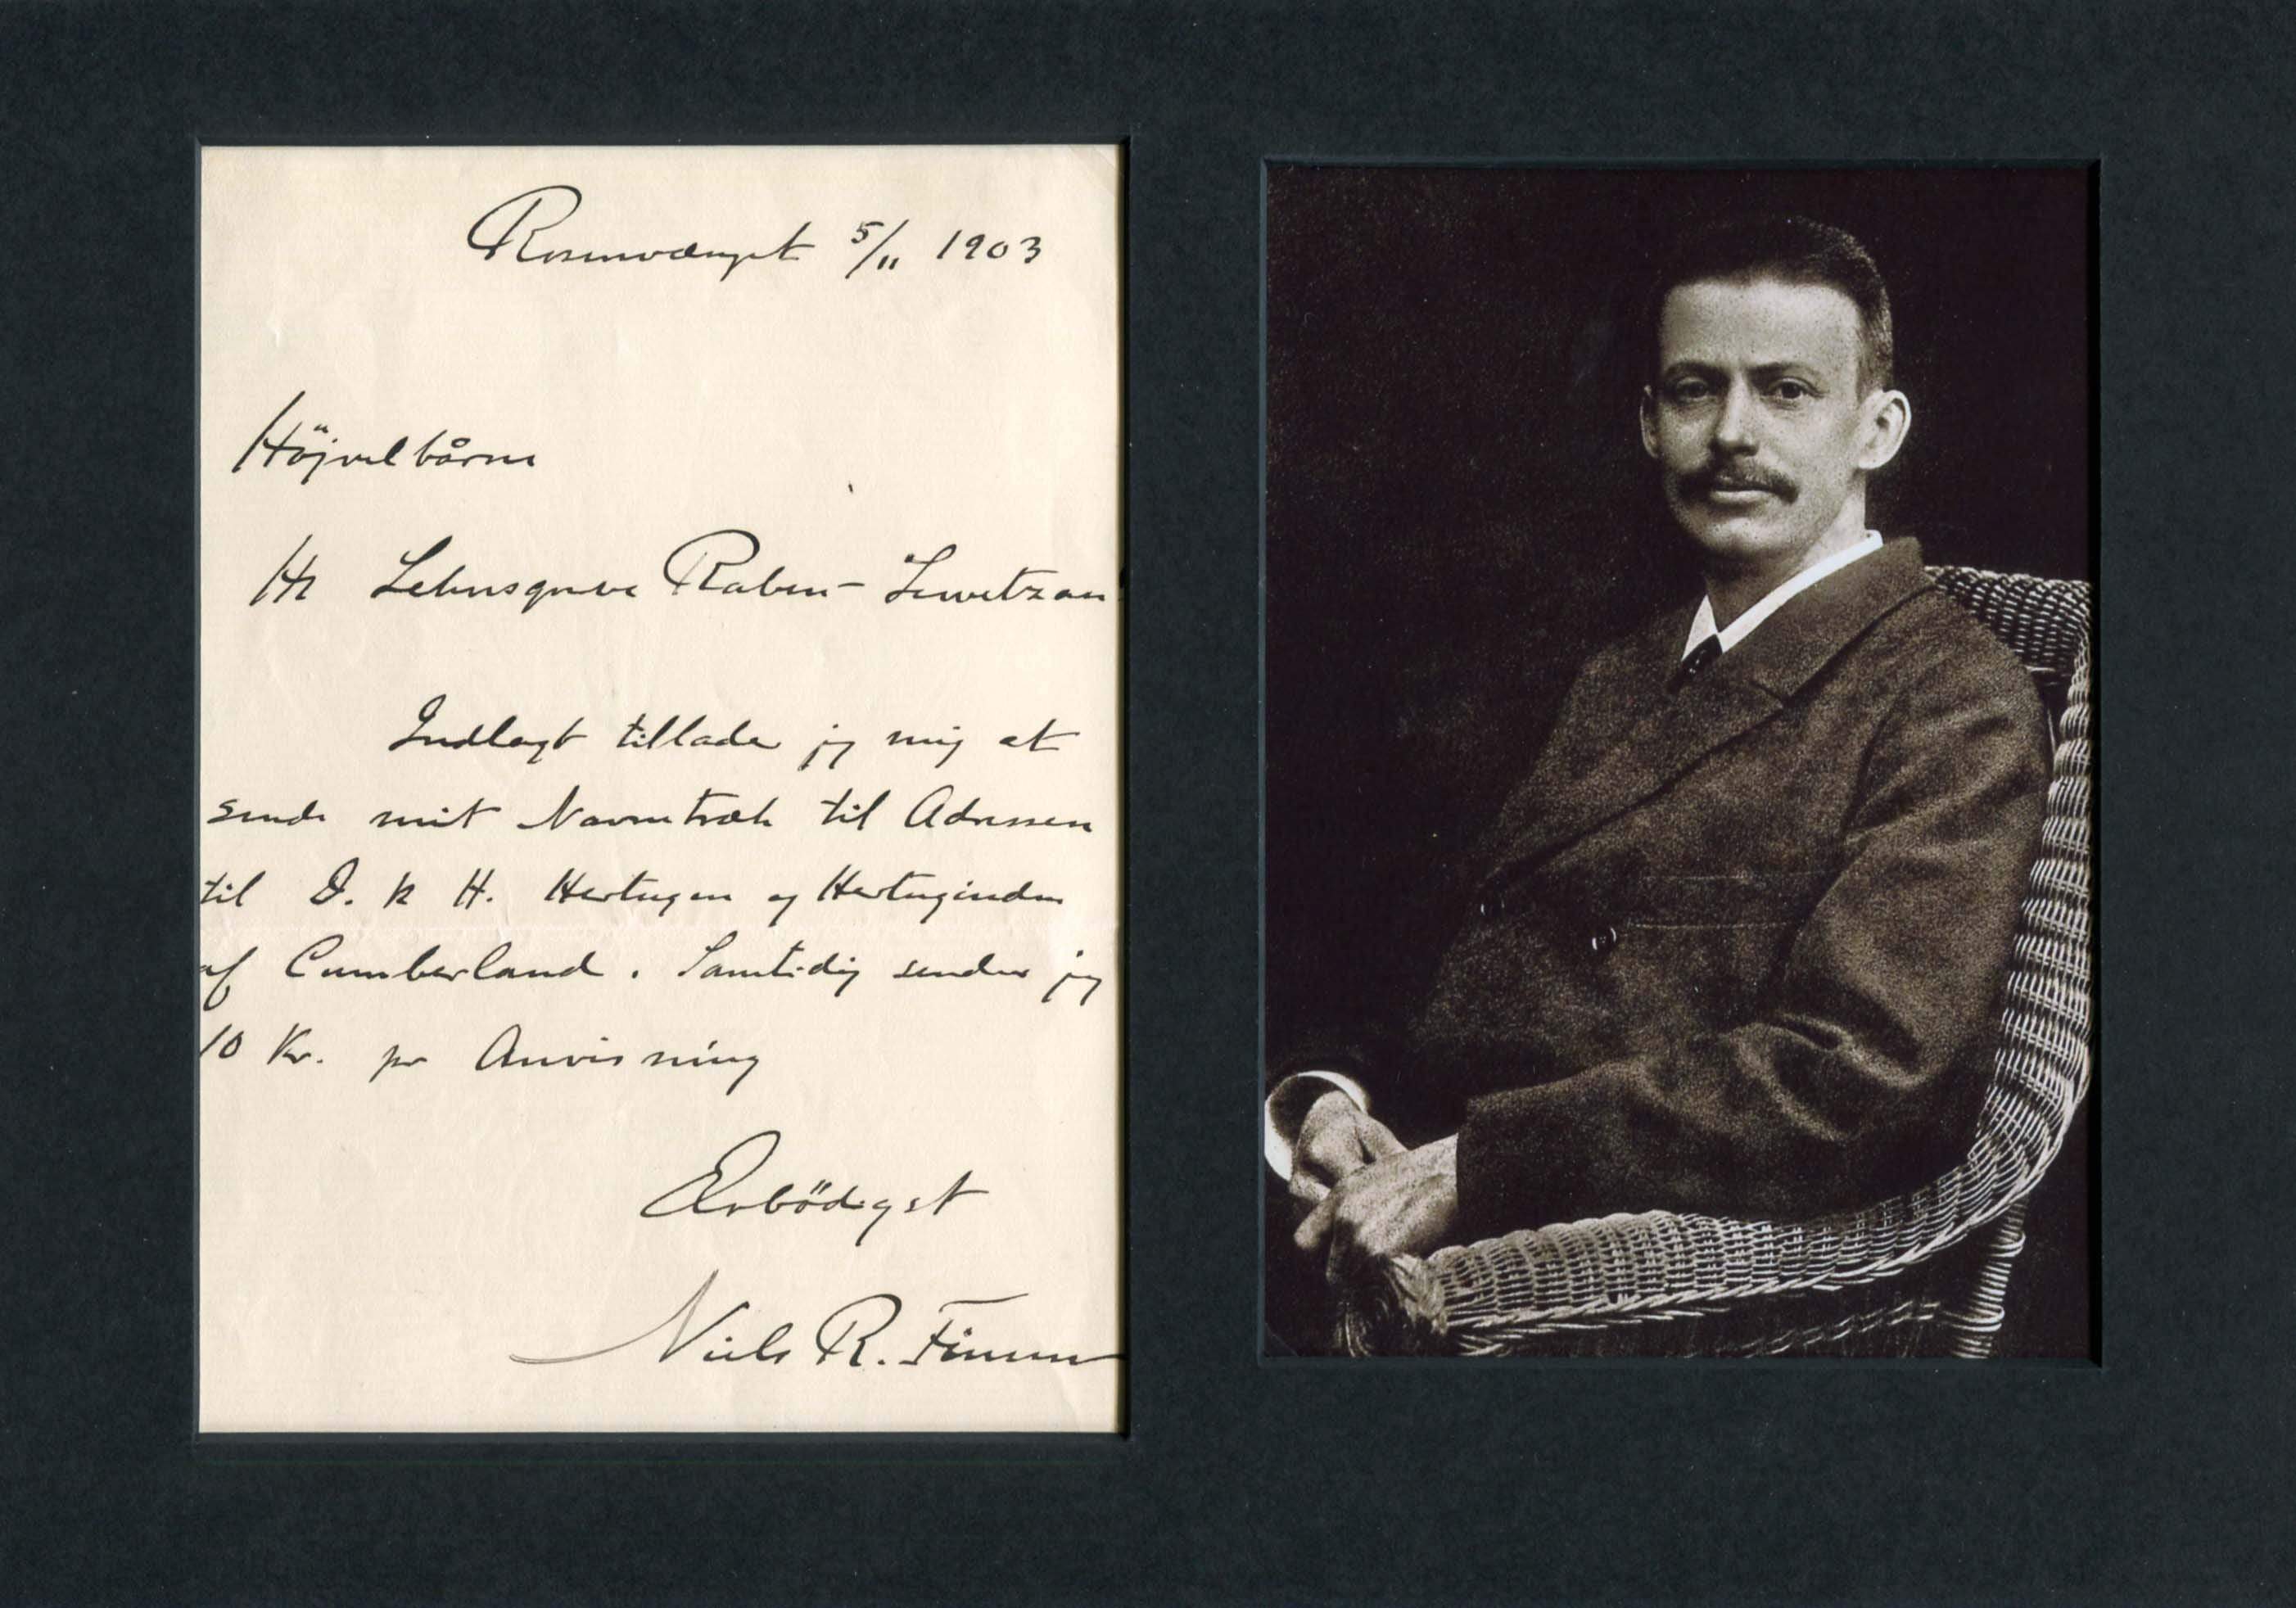 Rosenvænget 5/11 1903
Höjvelbårne
Hr Lehnsgreve Raben-Lewetzau
Indlagt tillader jeg mig at
sende mit Navnetræk til Adressen
til D. K H. Hertugen og Hertuginden
af Cumberland. Samtidig sender jeg
10 Kr. pr Anvisning
Ærbödigst
Niels R. Finsen